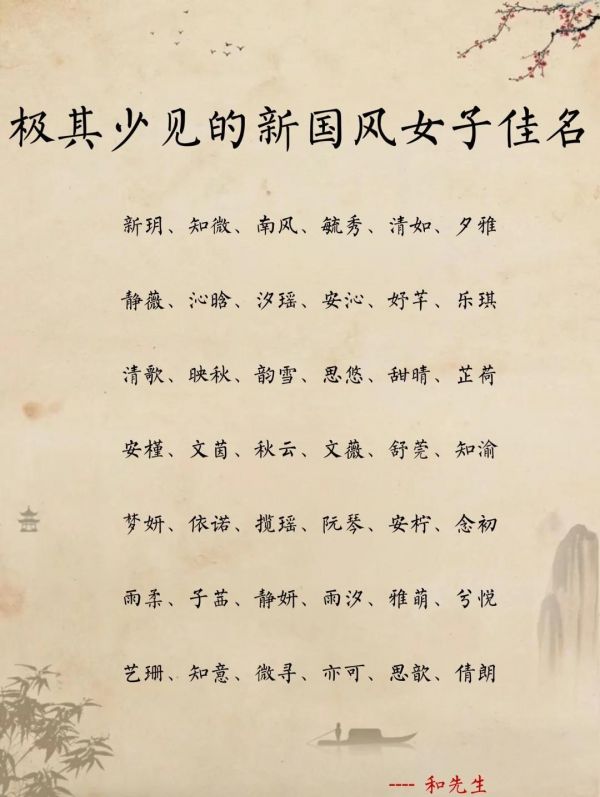 极其少见的新国风女子佳名
新玥、知微、南风、毓秀、清如、夕雅
静薇、沁晗、汐瑶、安沁、妤芊、乐琪
清歌、映秋、韵雪、思悠、甜晴、芷荷
安槿、文茵、秋云、文薇、舒莞、知渝
梦妍、依诺、揽瑶、阮琴、安柠、念初
雨柔、子茜、静妍、雨汐、雅萌、兮悦
艺珊、知意、微寻、亦可、思歆、倩朗
---- 和先生